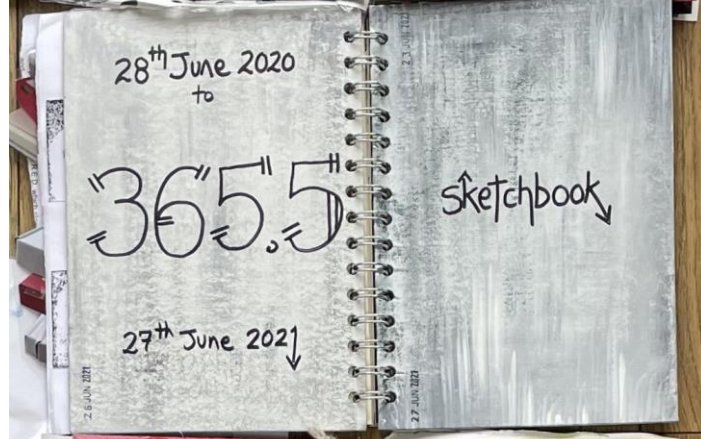 28th June 2020
to
365.5
27th June 2021
26 JUN 2021
sketchbook
27 JUN 2021